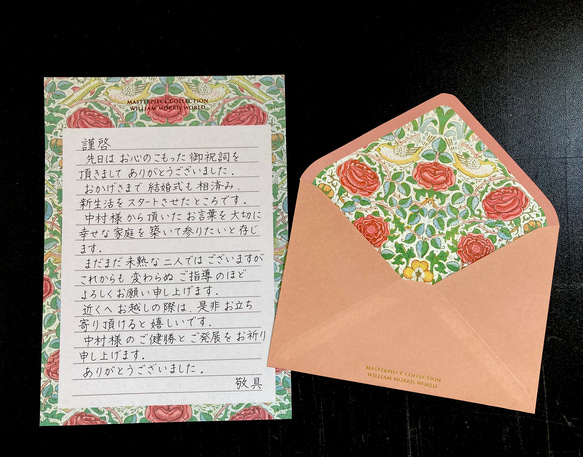 MASTERPIECE COLLECTION
WILLIAM MORRIS WORLD
謹啓
先日は お心のこもった 御祝詞を
頂きまして ありがとうございました。
おかげさまで 結婚式も 相済み、
新生活を スタートさせたところです。
中村様から 頂いた お言葉を 大切に
幸せな 家庭を 築いて 参りたいと 存じ
ます。
まだまだ 未熟な 二人では ございますが
これからも 変わらぬ ご指導の ほど
よろしくお願い 申し上げます。
近くへ お越しの際は、是非 お立ち
寄り頂けると 嬉しいです。
中村様の ご健勝と ご発展を お祈り
申し上げます。
ありがとうございました。
敬具
MASTERPIECE COLLECTION
WILLIAM MORRIS WORLD